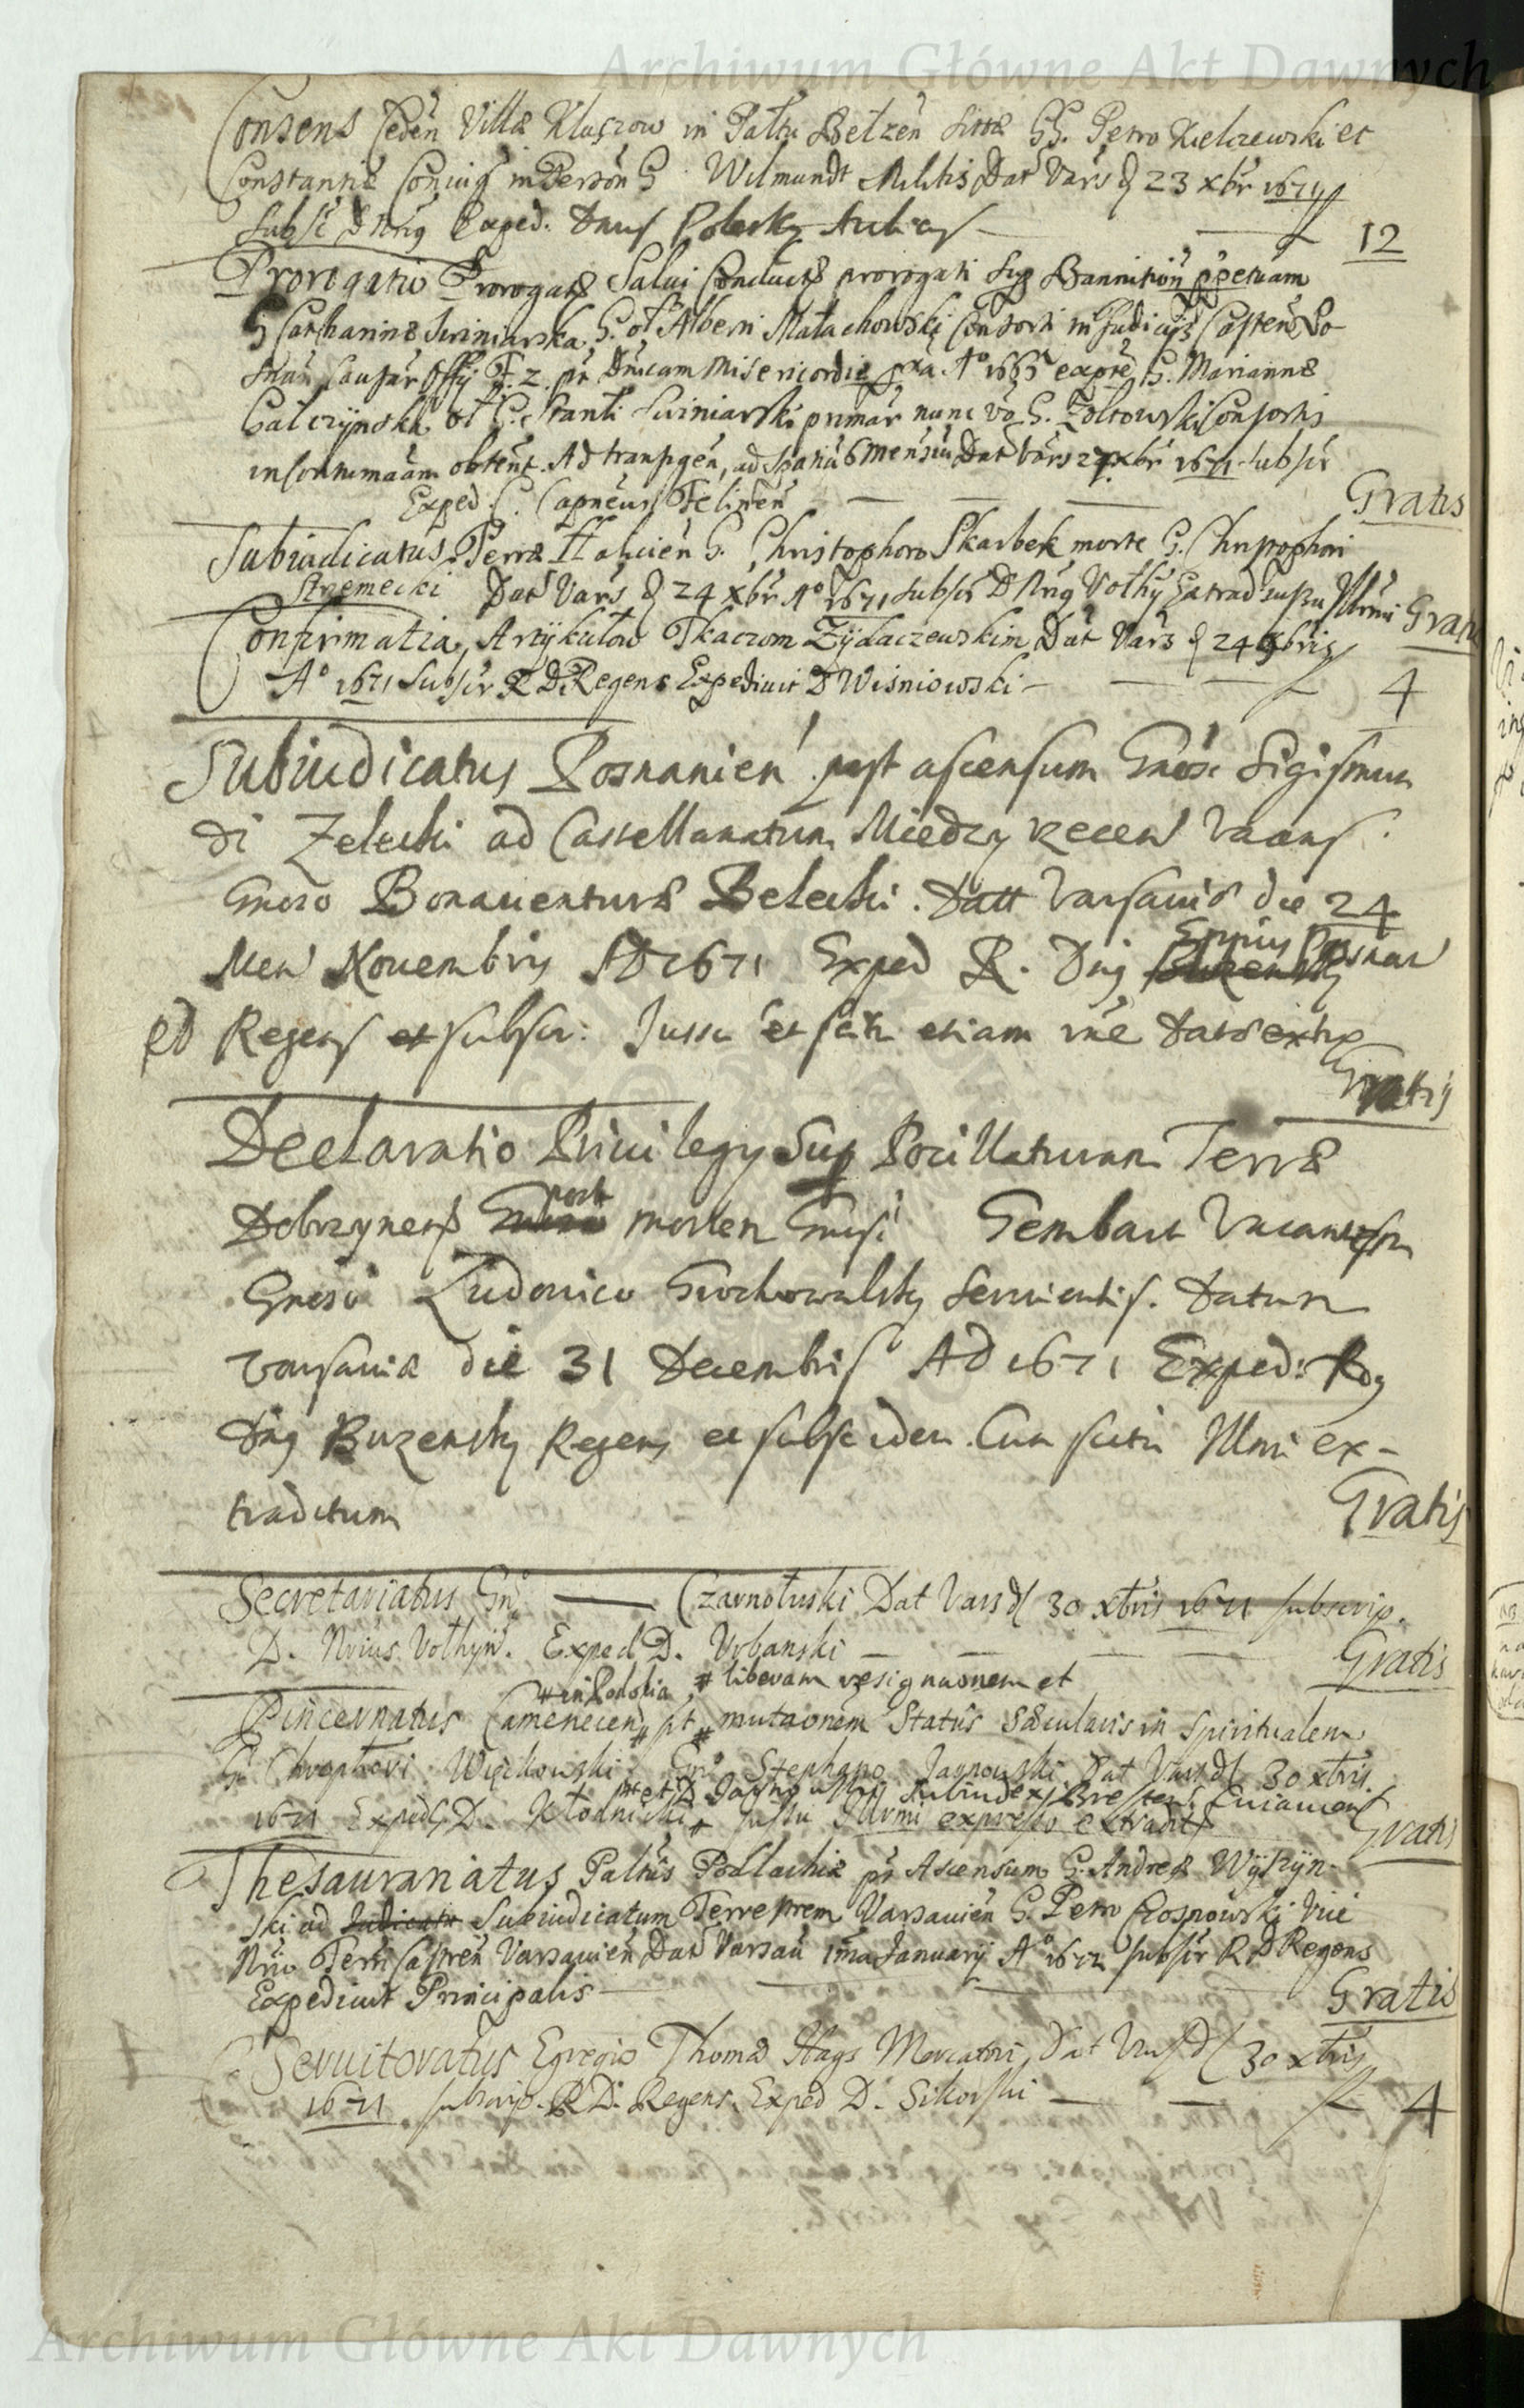 Archiwum Główne Akt Dawnych
Consens Ceden Villæ Kluszow in Pałtu Bełzen sittæ GG. Petro Kielczewski et
Constantiæ Coniug in Person G Wilmundt Militis Dat Vars d 23 xbr 1671
Subsc D Nrig Exped. Dnus Polesky Aulicus
12
Prorogatio Prorogatæ Salui Conductg prorogati sup Bannition ppetuam
G Catharinæ Swiniarska G. ol Alberti Małachowski Consorti in Judicijs Castren Po-
snan Causar Offij F. 2. pt Dnicam Misericordiæ pxa A° 1665 expte G. Mariannæ
Galczÿnska ol G. Stanti Swiniarski primar nunc vo G. Zołtowski Consortis
in Contumaam obtent. Ad transigen, ad spatiu 6 mensiu Dat Vars 27 xbr 1671 subscr
Exped. G. Capneus Felinen
Gratis
Subiudicatus Terræ Halicien G. Christophoro Skarbek morte G. Chrystophori
Strzemecki Dat Vars d 24 xbr A° 1671 subscr D Nrig Vołhy Extrad jussu Illrmi Gratis
Confirmatia, Artÿkułow Tkaczom Zÿdaczewskim Dat Vars d 24 9bris
A° 1671 Subscr R D Regens Expediuit D Wisniowski
4
Subiudicatus Posnanien post ascensum Gnosi Sigismun
di Zelecki ad Castellanatum Miedzyrecen Vacans
Gnoso Bonauenturæ Belecki. Datt Varsauiæ die 24
Men Novembris AD 1671 Exped R. Dnus Posnan
Regens et subscr: Jussu et scitu etiam
Gratis
Declaratio Priuilegy Sup Pocillaturam Terræ
Dobrzynens post mortem Gnosi Gembart Vacantem
Gnoso Ludovico Grochowalsky seruientis. Datum
Varsauiæ die 31 Decembris AD 1671 Exped: R
Dnus Buzensky Regens et subsc idem. Cum scitu Illmi ex-
traditum
Gratis
Secretariatus Gn° Czarnołuski Dat Vars d 30 xbris 1671 subscrip.
D. Nrius Vołhyn. Exped D. Vrbanski
Gratis
# in Podolia # liberam resignaonem et
Pincernatus Camenecen # pt # mutaonem Status Sæcularis in Spiritualem
G Chrystophori Więckowski Gn° Stephano Jasnowski Dat Vars d 30 xbris
1671 Exped. D. Kłodnicki # Jussu Illrmi expresso extradit
Gratis
Thesaurariatus Pałtus Podlachiæ pt Ascensum G. Andreæ Wÿszÿn-
ski ad Judicatu Subiudicatum Terre prem Varsauien G. Petro Rosnowski Vice
Nrio Terr Castren Varsauien Dat Varsau 1ma Januarij A° 1672 subscr R D Regens
Expediuit Principalis
Gratis
Seruitoratus Egregio Thomæ Hags Mercatori Dat Vars d 30 xbris
1671 subscrip. R D. Regens. Exped D. Sikorski
4
Archiwum Główne Akt Dawnych